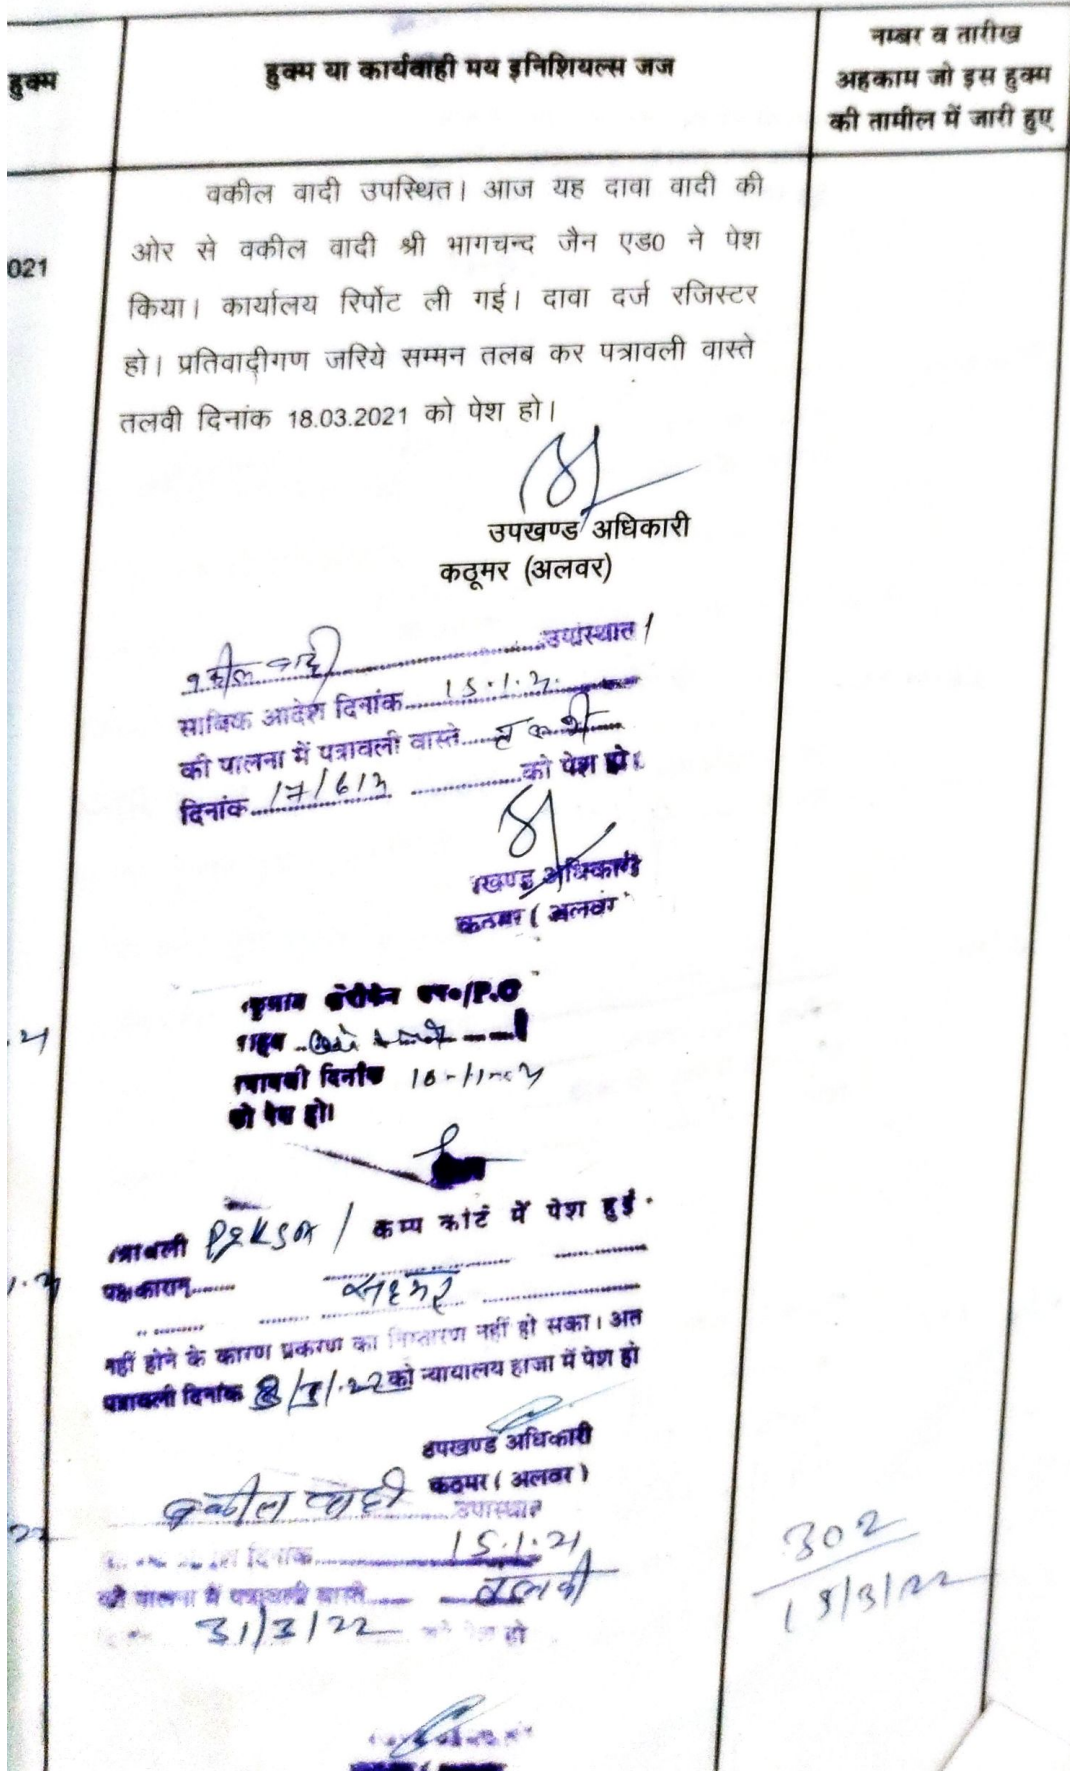 हुक्म
हुक्म या कार्यवाही मय इनिशियल्स जज
नम्बर व तारीख
अहकाम जो इस हुक्म
की तामील में जारी हुए
021
वकील वादी उपस्थित। आज यह दावा वादी की
ओर से वकील वादी श्री भागचन्द जैन एड0 ने पेश
किया। कार्यालय रिर्पोट ली गई। दावा दर्ज रजिस्टर
हो। प्रतिवादीगण जरिये सम्मन तलब कर पत्रावली वास्ते
तलवी दिनांक 18.03.2021 को पेश हो।
उपखण्ड अधिकारी
कठूमर (अलवर)
वकील वादी उपस्थित।
साबिक आदेश दिनांक 15.1.21
की पालना में पत्रावली वास्ते तलवी
दिनांक 17/6/21 को पेश हो।
खण्ड अधिकारी
कठूमर ( अलवर
.21
दिनांक
को पेश हो।
त्रावली / कैम्प कोर्ट में पेश हुई
पक्षकारान्
नहीं होने के कारण प्रकरण का निस्तारण नहीं हो सका। अत
पत्रावली दिनांक को न्यायालय हाजा में पेश हो
उपखण्ड अधिकारी
कठूमर ( अलवर )
22
वकील वादी उपस्थित
दिनांक 15.1.21
की पालना में पत्रावली वास्ते तलवी
31/3/22 को पेश हो
302